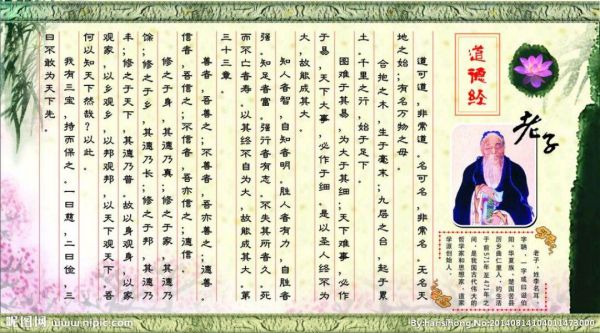 道德经
老子
老子，姓李名耳，
字聃，一字或曰谥伯
阳。华夏族，楚国苦县
厉乡曲仁里人，约生活
于前571年至471年之
间，是我国古代伟大的
哲学家和思想家、道家
学派创始人。
道可道，非常道。名可名，非常名。无名天
地之始；有名万物之母。
合抱之木，生于毫末；九层之台，起于累
土。千里之行，始于足下。
图难于其易，为大于其细；天下难事，必作
于易，天下大事，必作于细。是以圣人终不为
大，故能成其大。
知人者智，自知者明。胜人者有力，自胜者
强。知足者富。强行者有志。不失其所者久。死
而不亡者寿。以其终不自为大，故能成其大。第
三十三章
善者，吾善之；不善者，吾亦善之；德善。
信者，吾信之；不信者，吾亦信之；德信。
修之于身，其德乃真；修之于家，其德乃
馀；修之于乡，其德乃长；修之于邦，其德乃
丰；修之于天下，其德乃普。故以身观身，以家
观家，以乡观乡，以邦观邦，以天下观天下。吾
何以知天下然哉？以此。
我有三宝，持而保之。一曰慈，二曰俭，三
曰不敢为天下先。
昵图网 www.nipic.com
No:20140814104011473000